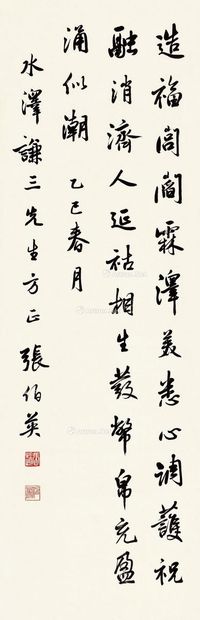 造福閭閻霖澤美悉心調護祝
融消濟人延祜相生發幣帛充盈
涌似潮 乙巳春月
水澤謙三先生方正 張伯英